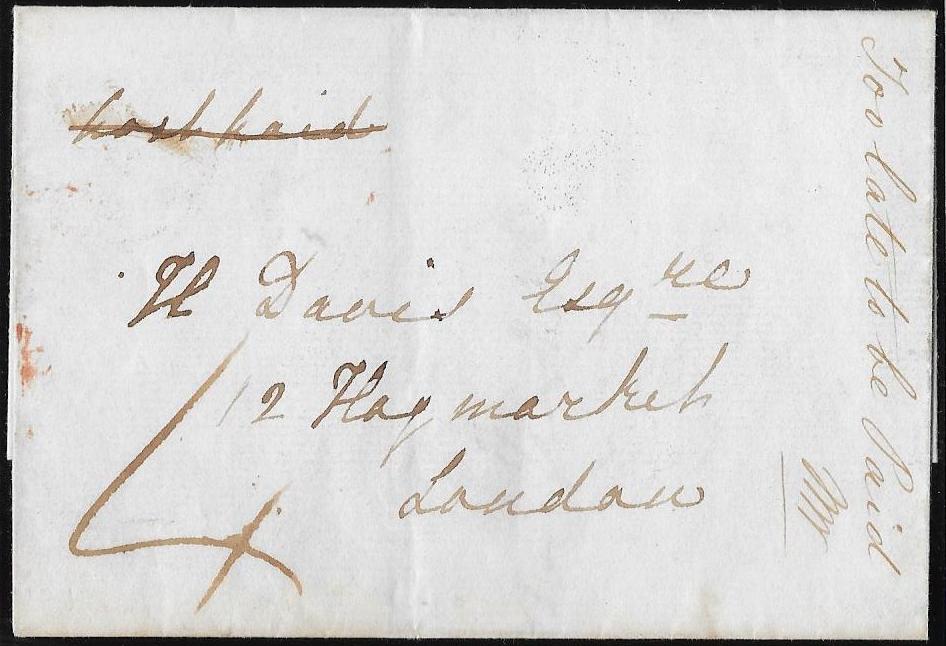 post paid
H Davis Esqre
12 Haymarket
London
4
Too late to be Paid